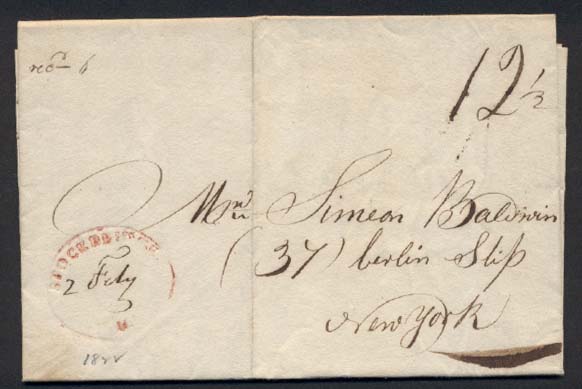 recd 6
12 1/2
Mr Simeon Baldwin
(37) berlin Slip
New York
2 Feby